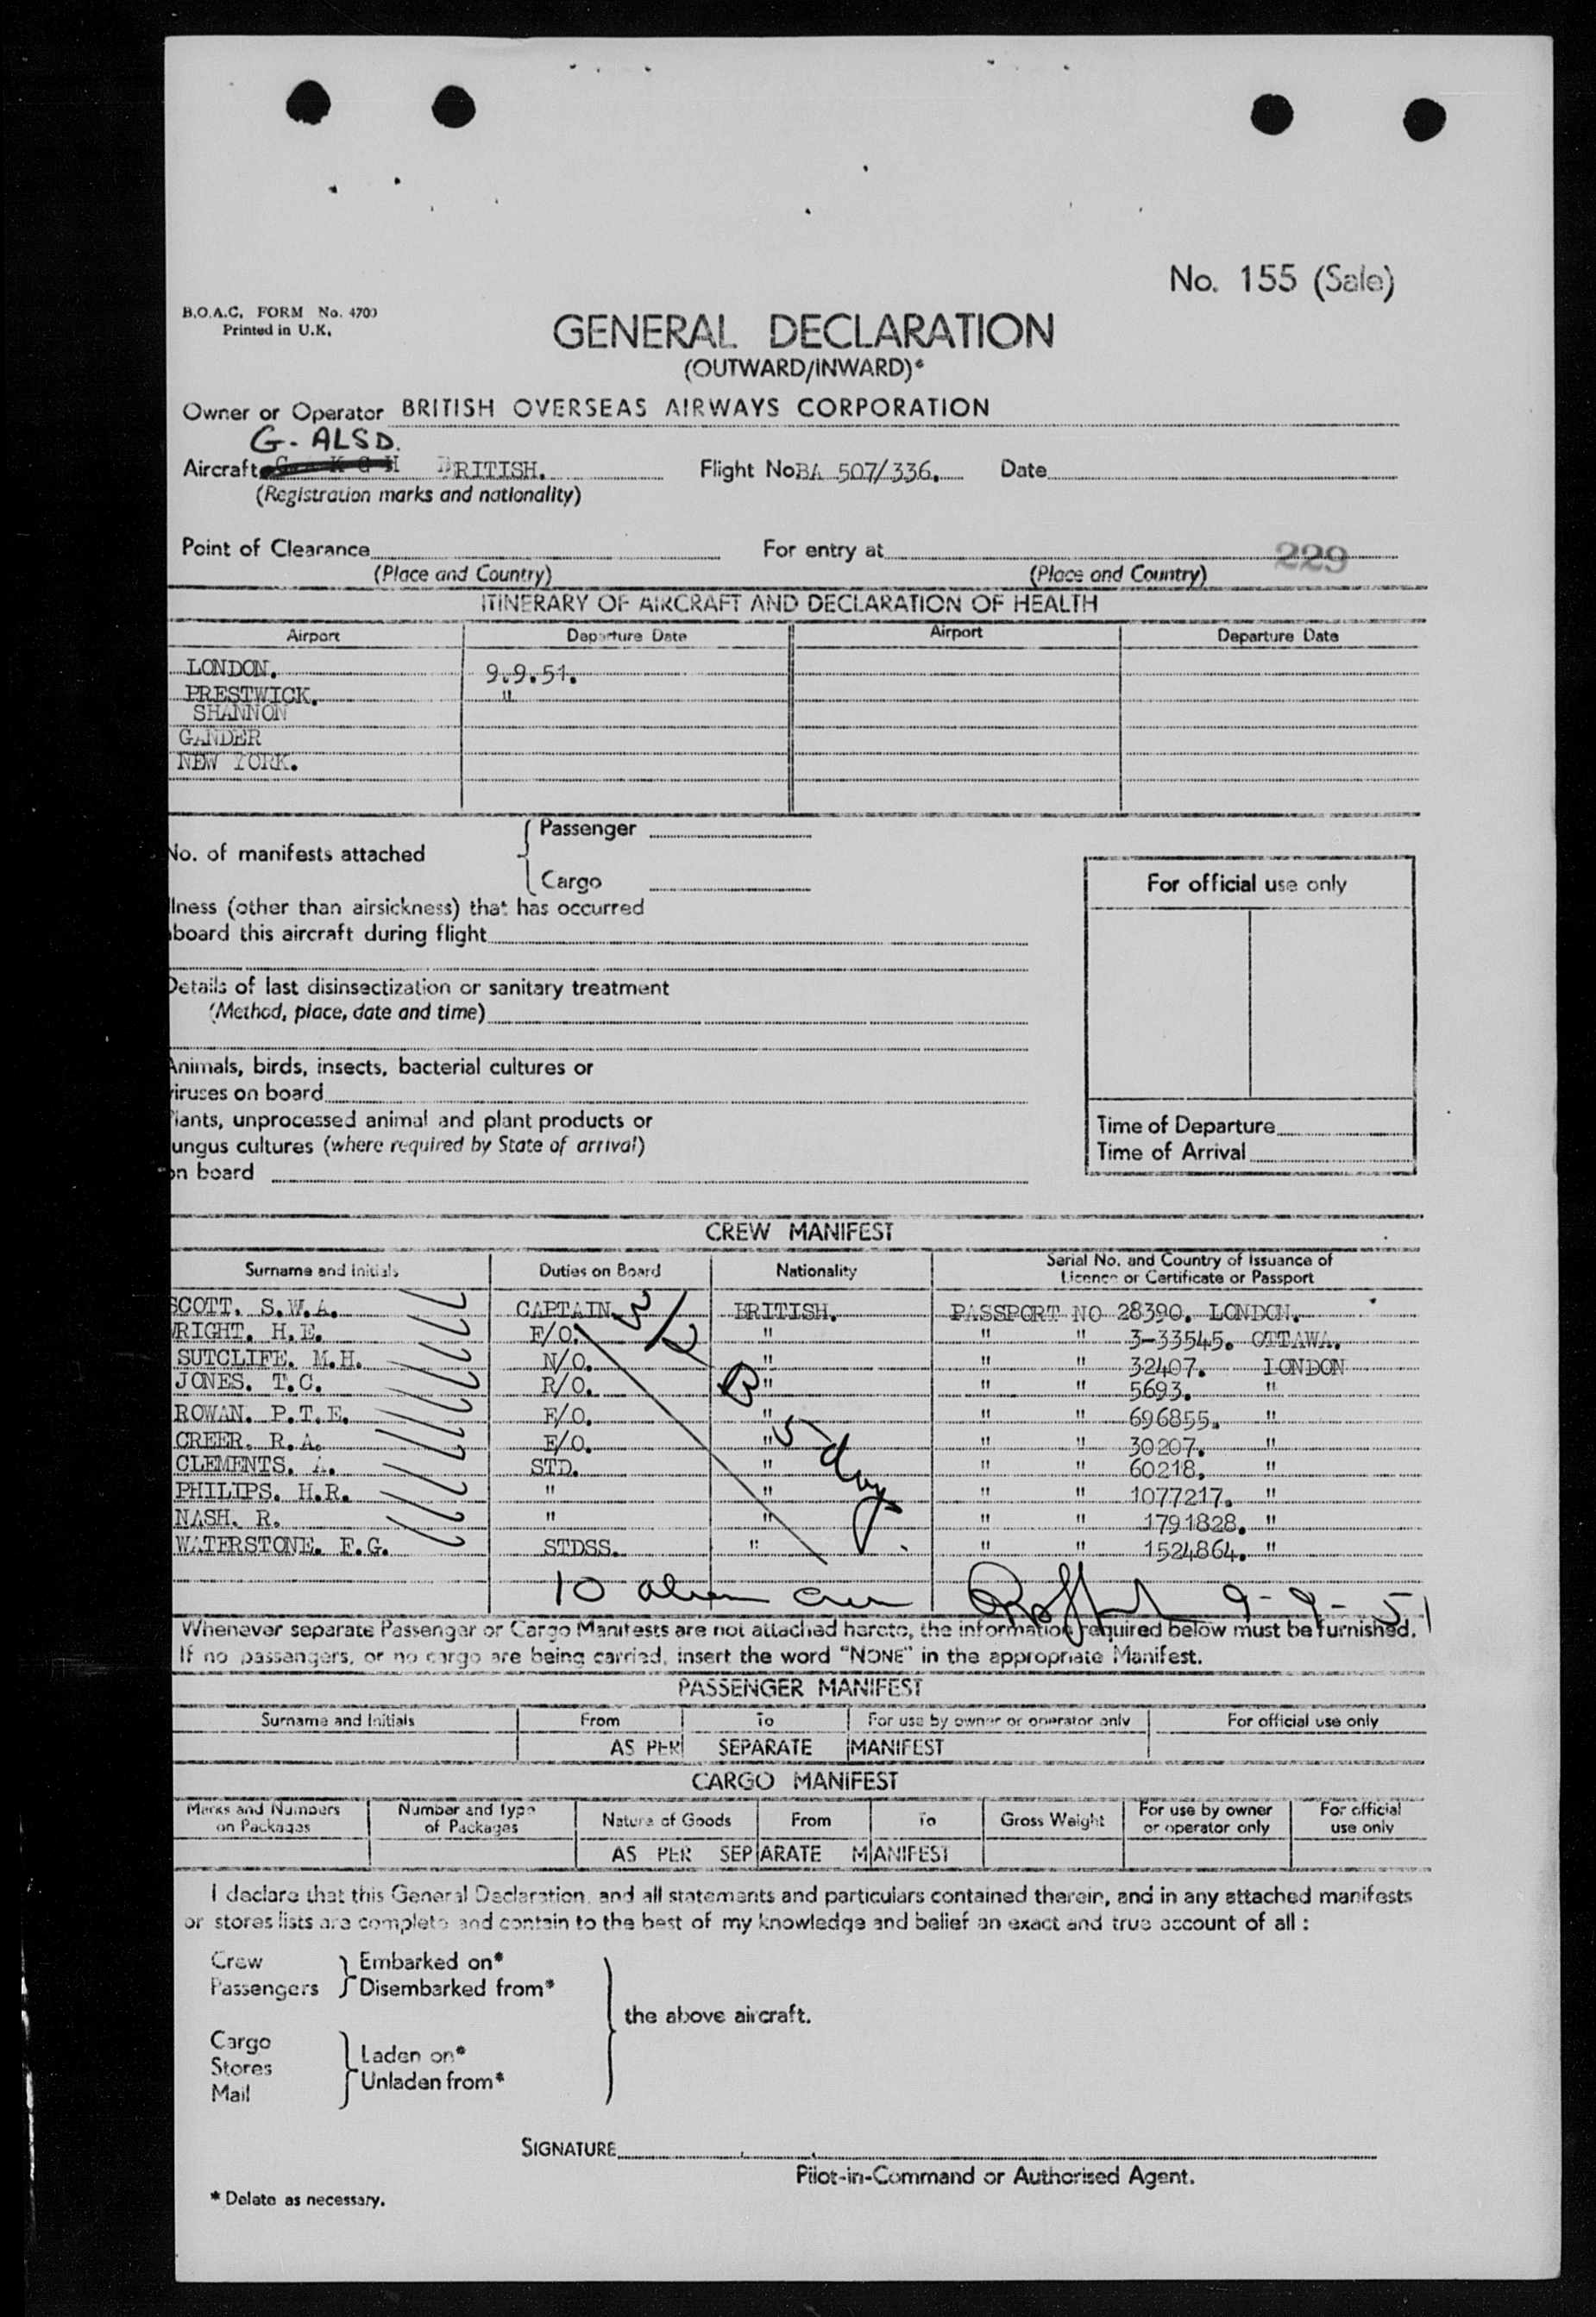 No. 155 (Sale)
B.O.A.C. FORM No. 4700
Printed in U.K.
GENERAL DECLARATION
(OUTWARD/INWARD)*
Owner or Operator BRITISH OVERSEAS AIRWAYS CORPORATION
G-ALSD.
Aircraft BRITISH. Flight No. BA 507/336. Date
(Registration marks and nationality)
Point of Clearance For entry at 229
(Place and Country) (Place and Country)
ITINERARY OF AIRCRAFT AND DECLARATION OF HEALTH
Airport Departure Date Airport Departure Date
LONDON. 9.9.51.
PRESTWICK. "
SHANNON
GANDER
NEW YORK.
No. of manifests attached
Passenger
Cargo
For official use only
lness (other than airsickness) that has occurred
board this aircraft during flight
Details of last disinsectization or sanitary treatment
(Method, place, date and time)
Animals, birds, insects, bacterial cultures or
iruses on board
lants, unprocessed animal and plant products or
ungus cultures (where required by State of arrival)
on board
Time of Departure
Time of Arrival
CREW MANIFEST
Surname and Initials Duties on Board Nationality Serial No. and Country of Issuance of Licence or Certificate or Passport
SCOTT. S.W.A. CAPTAIN. BRITISH. PASSPORT NO 28390. LONDON.
RIGHT. H.E. F/O. " " " 3-33545. OTTAWA.
SUTCLIFE. M.H. N/O. " " " 32407. LONDON
JONES. T.C. R/O. " " " 5693. "
ROWAN. P.T.E. E/O. " " " 696855. "
CREER. R.A. E/O. " " " 30207. "
CLEMENTS. A. STD. " " " 60218. "
PHILIPS. H.R. " " " " 1077217. "
NASH. R. " " " " 1791828. "
WATERSTONE. F.G. STDSS. " " " 1524864. "
B 5 day
10 alien crew 9-9-51
Whenever separate Passenger or Cargo Manifests are not attached hereto, the information required below must be furnished.
If no passengers, or no cargo are being carried, insert the word "NONE" in the appropriate Manifest.
PASSENGER MANIFEST
Surname and Initials From To For use by owner or operator only For official use only
AS PER SEPARATE MANIFEST
CARGO MANIFEST
Marks and Numbers on Packages Number and Type of Packages Nature of Goods From To Gross Weight For use by owner or operator only For official use only
AS PER SEPARATE MANIFEST
I declare that this General Declaration, and all statements and particulars contained therein, and in any attached manifests
or stores lists are complete and contain to the best of my knowledge and belief an exact and true account of all :
Crew Embarked on*
Passengers Disembarked from*
the above aircraft.
Cargo
Stores Laden on*
Mail Unladen from*
SIGNATURE
Pilot-in-Command or Authorised Agent.
* Delete as necessary.